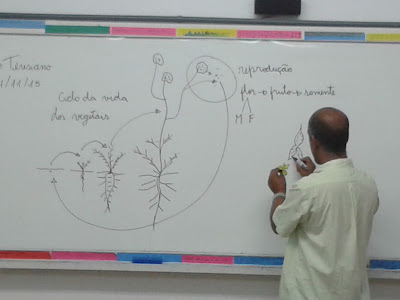 Teresiano
11/15
Ciclo da vida
dos vegetais
reprodução
flor → fruto → semente
M F